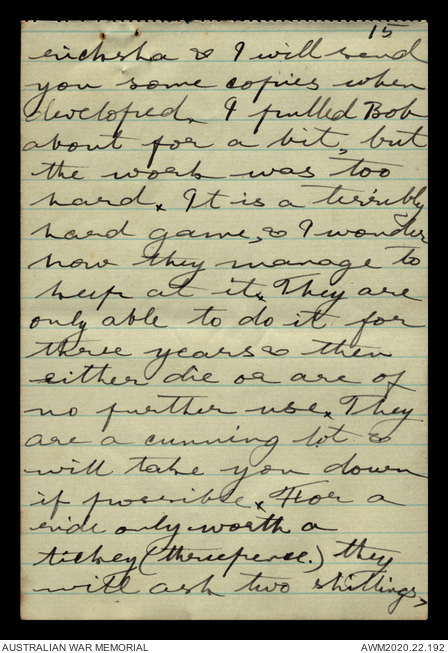 15
ricksha & I will send
you some copies when
developed. I pulled Bob
about for a bit, but
the work was too
hard. It is a terribly
hard game, & I wonder
how they manage to
keep at it. They are
only able to do it for
three years & then
either die or are of
no further use. They
are a cunning lot &
will take you down
if possible. For a
ride only worth a
tickey (threepence.) they
will ask two shillings,
AUSTRALIAN WAR MEMORIAL
AWM2020.22.192